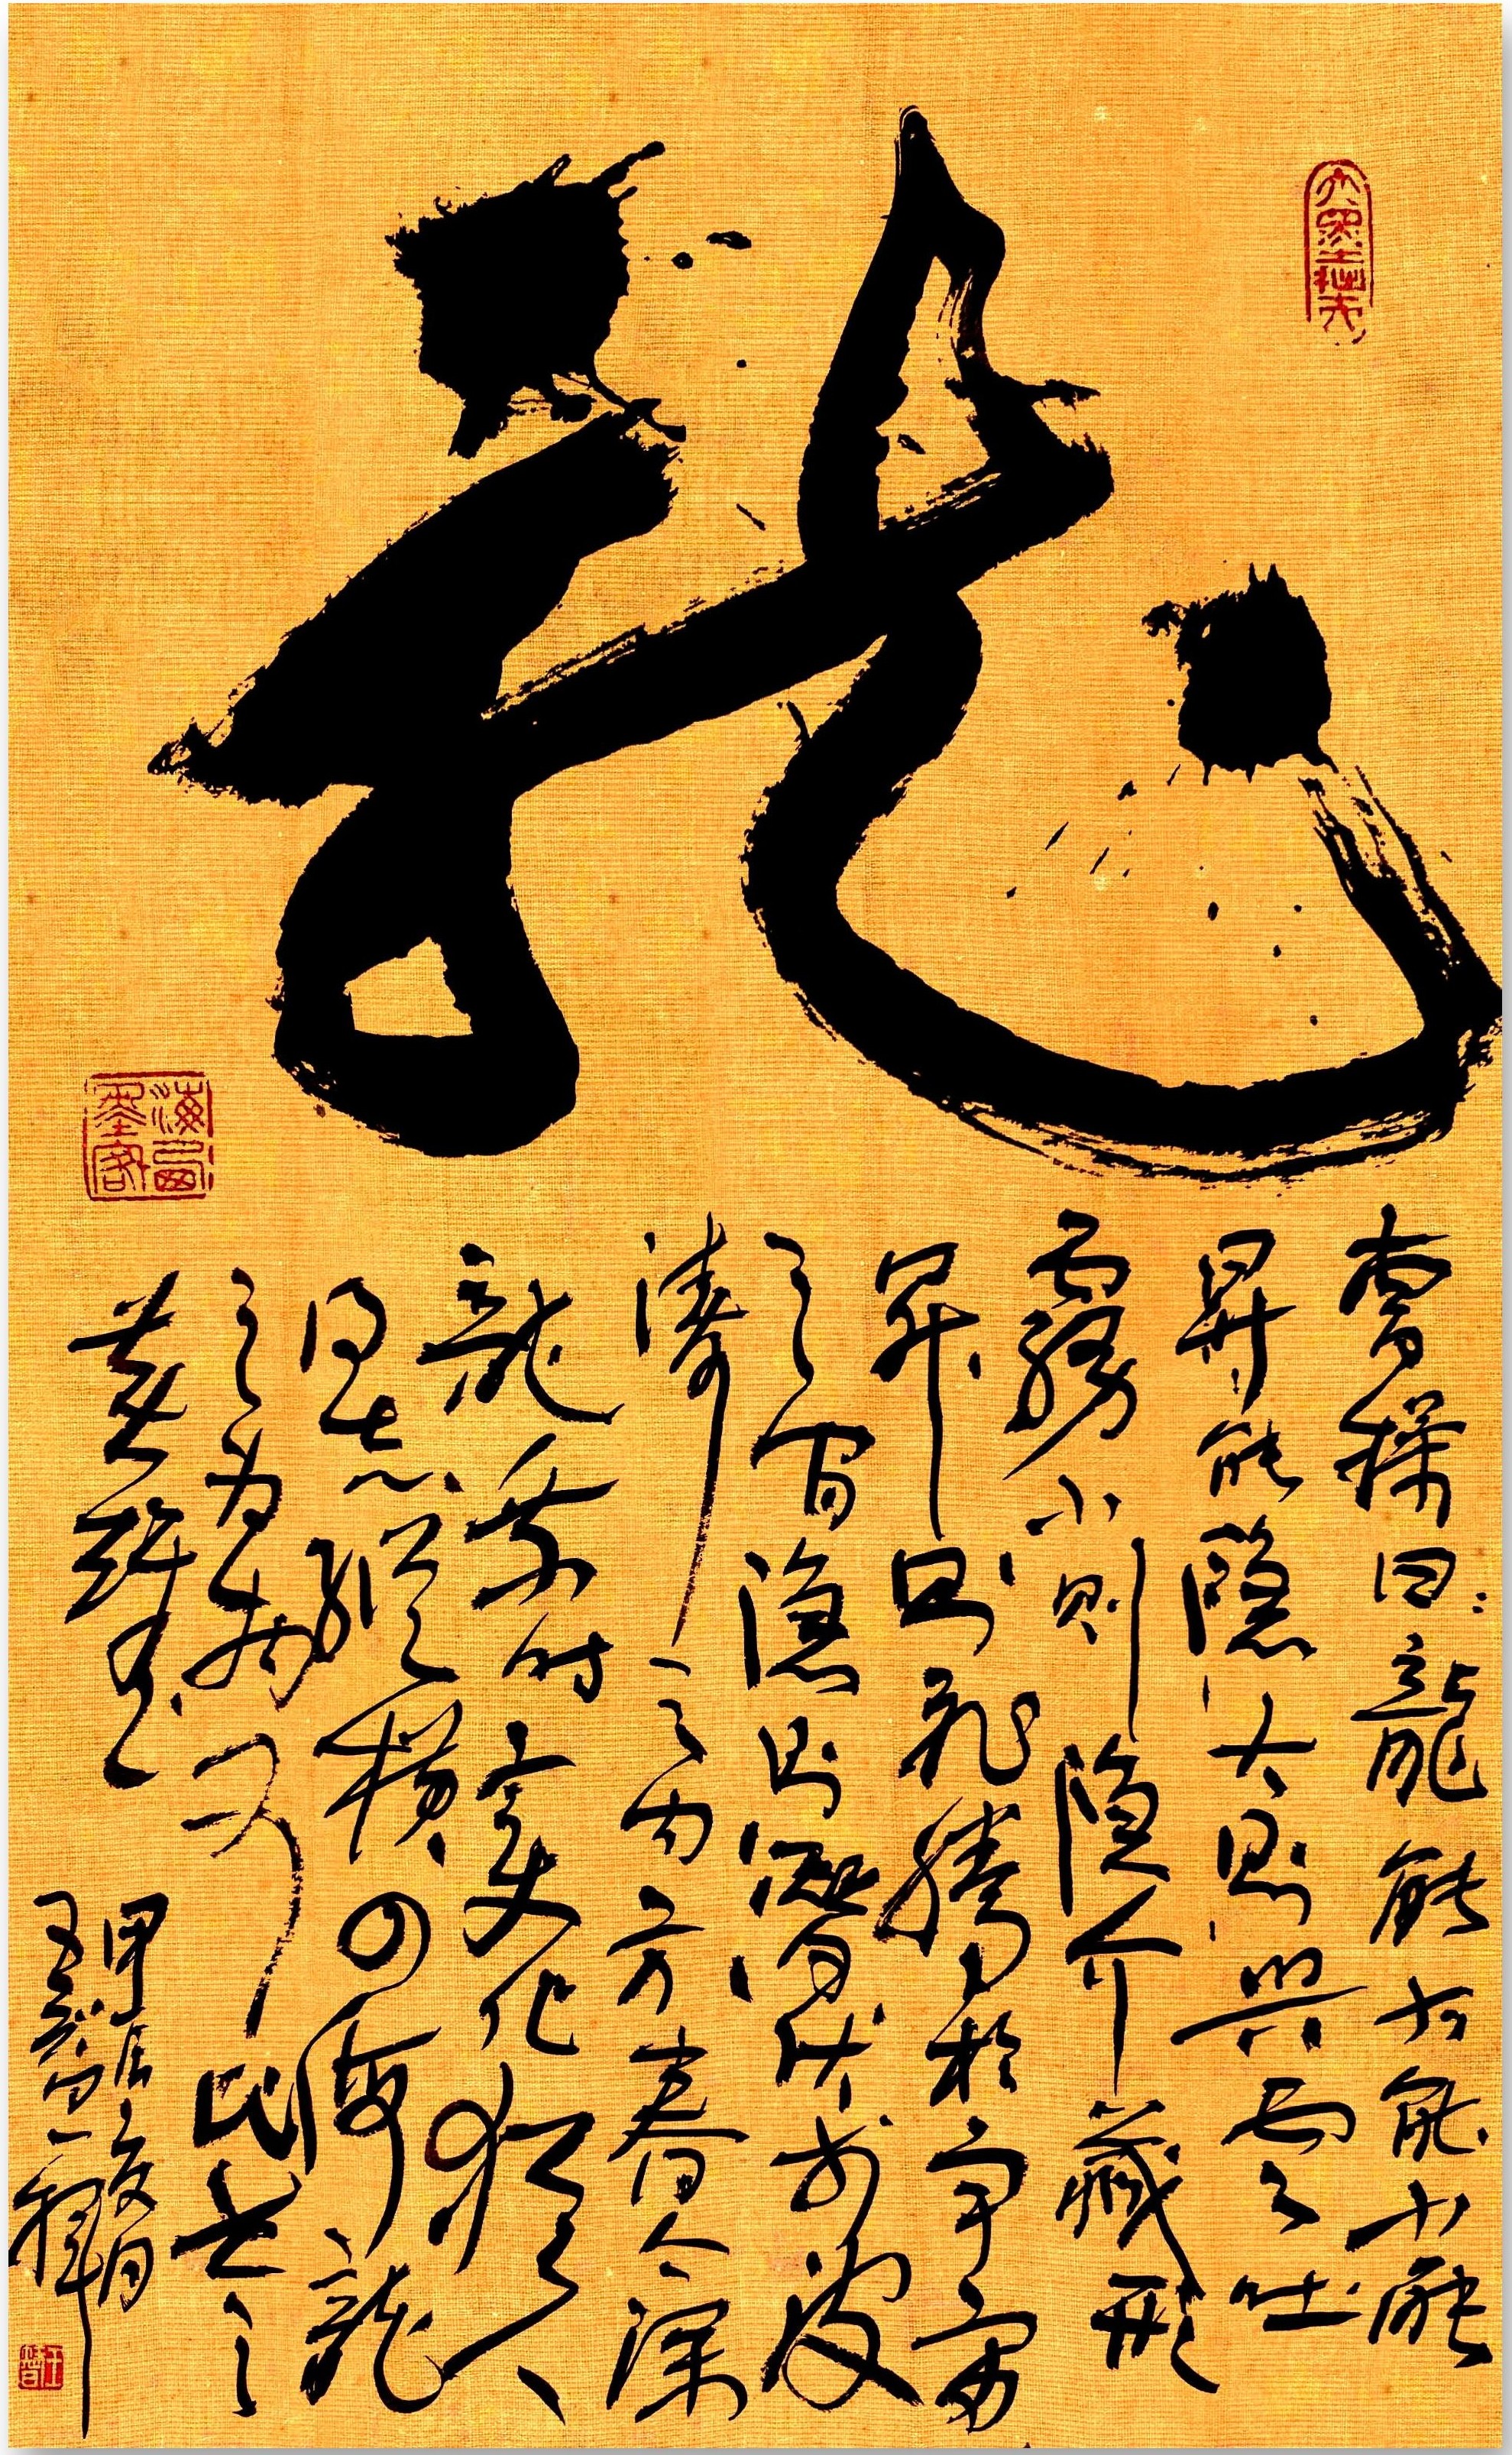 龍
曹操曰：龍能大能小能
昇能隱大則興雲吐
霧小則隱介藏形
昇則飛騰於宇宙
之間隱則潛伏於波
濤之內方春今深
龍乘時變化猶人
得志縱橫四海龍
之為物可比世之
英雄
甲辰夏月